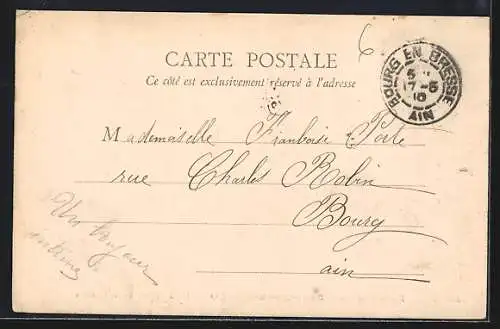 6
CARTE POSTALE
Ce côté est exclusivement réservé à l'adresse
BOURG EN BRESSE
17-5
AIN
Mademoiselle Framboise
rue Charles Robin
Bourg
ain
Un bonjour